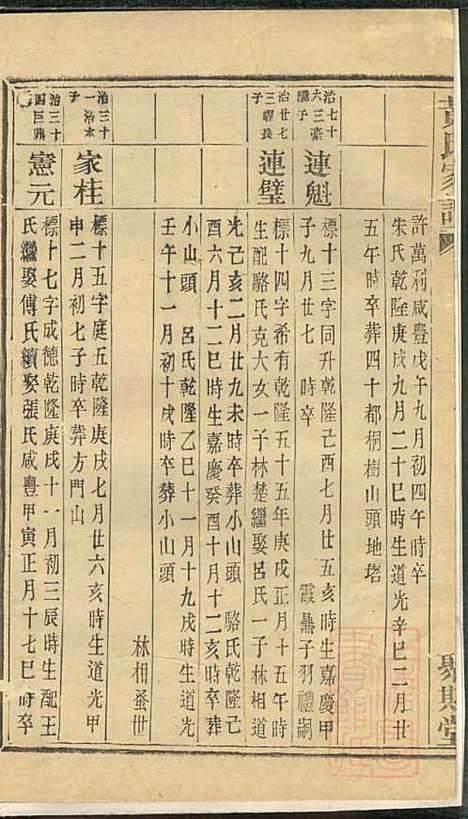 黃氏家譜
聚順堂
許萬利咸豐戊午九月初四午時卒
朱氏乾隆庚戌九月二十巳時生道光辛巳二月廿
五午時卒葬四十都桐樹山頭地塔
治七十
六三豪
讓子
連魁
標十三字同升乾隆己酉七月廿五亥時生嘉慶甲
子九月廿七 時卒 霞鼎子羽禮嗣
治廿七
三 長
子
連璧
標十四字希有乾隆五十五年庚戌正月十五午時
生配駱氏克大女一子林楚繼娶呂氏一子林相道
光己亥二月廿九未時卒葬小山頭 駱氏乾隆己
酉六月十二巳時生嘉慶癸酉十月十二亥時卒葬
小山頭 呂氏乾隆乙巳十一月十九戌時生道光
壬午十一月初十戌時卒葬小山頭
林相蚤世
治三十
一治本
子
家桂
標十五字庭五乾隆庚戌七月廿六亥時生道光甲
申二月初七子時卒葬方門山
治三十
四巨
憲元
標十七字成德乾隆庚戌十一月初三辰時生配王
氏繼娶傅氏續娶張氏咸豐甲寅正月十七巳時卒